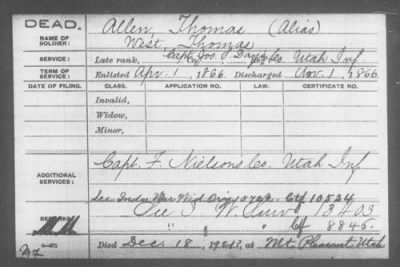 DEAD.
NAME OF SOLDIER:
Allen, Thomas (Alias)
West, Thomas
SERVICE:
Late rank, Capt Jos. Days Co. Utah Inf
TERM OF SERVICE:
Enlisted Apr. 1, 1866. Discharged Nov. 1, 1866
DATE OF FILING. CLASS. APPLICATION NO. LAW. CERTIFICATE NO.
Invalid,
Widow,
Minor,
ADDITIONAL SERVICES:
Capt. F. Nielsons Co. Utah Inf
See Indn War Wid Orig Ctf 10524
See I. W. Surv 13403
REMARKS:
Ctf 8846.
Died Dec. 18, at Mt Pleasant Utah